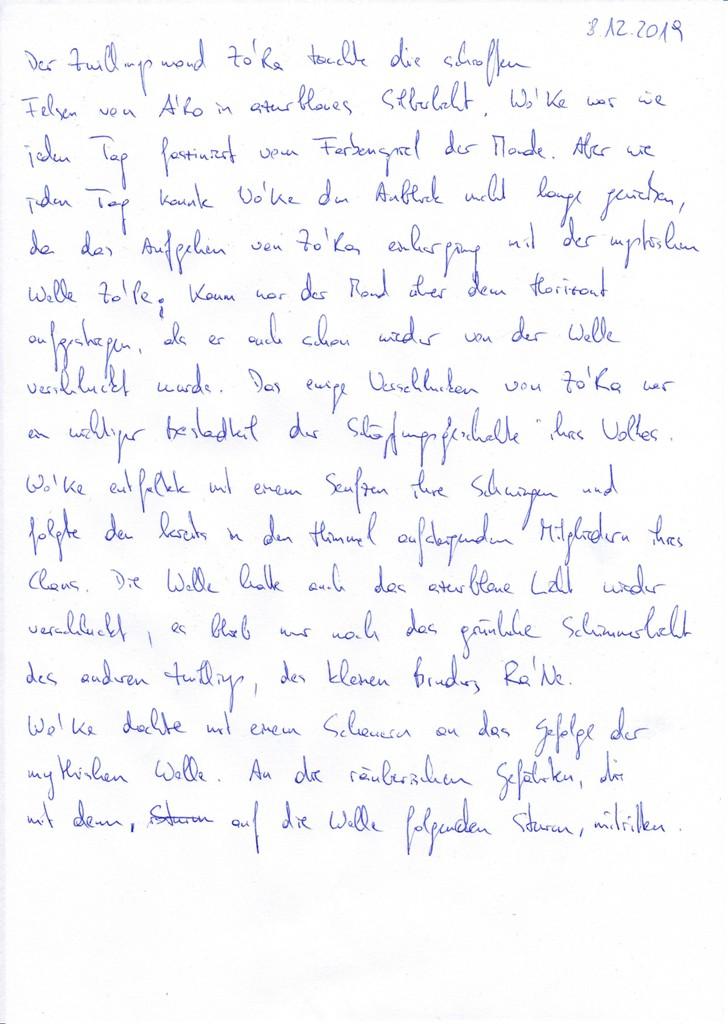 3.12.2019
Der Zwillingsmond Zo'Ra tauchte die schroffen
Felsen von A'Ro in azurblaues Silberlicht. Wo'Ke war wie
jeden Tag fasziniert vom Farbenspiel der Monde. Aber wie
jeden Tag konnte Wo'Ke den Anblick nicht lange genießen,
da das Aufgehen von Zo'Ra einherging mit der mythischen
Welle Zo'Pe. Kaum war der Mond über dem Horizont
aufgestiegen, als er auch schon wieder von der Welle
verschluckt wurde. Das ewige Verschlucken von Zo'Ra war
ein wichtiger Bestandteil der Schöpfungsgeschichte ihres Volkes.
Wo'Ke entfaltete mit einem Seufzen ihre Schwingen und
folgte den bereits in den Himmel aufsteigenden Mitgliedern ihres
Clans. Die Welle hatte auch das azurblaue Licht wieder
verschluckt, es blieb nur noch das grünliche Schimmerlicht
des anderen Zwillings, des kleinen Bruders Ra'Ne.
Wo'Ke dachte mit einem Schauern an das Gefolge der
mythischen Welle. An die räuberischen Gefährten, die
mit dem, Sturm auf die Welle folgenden Sturm, mitritten.